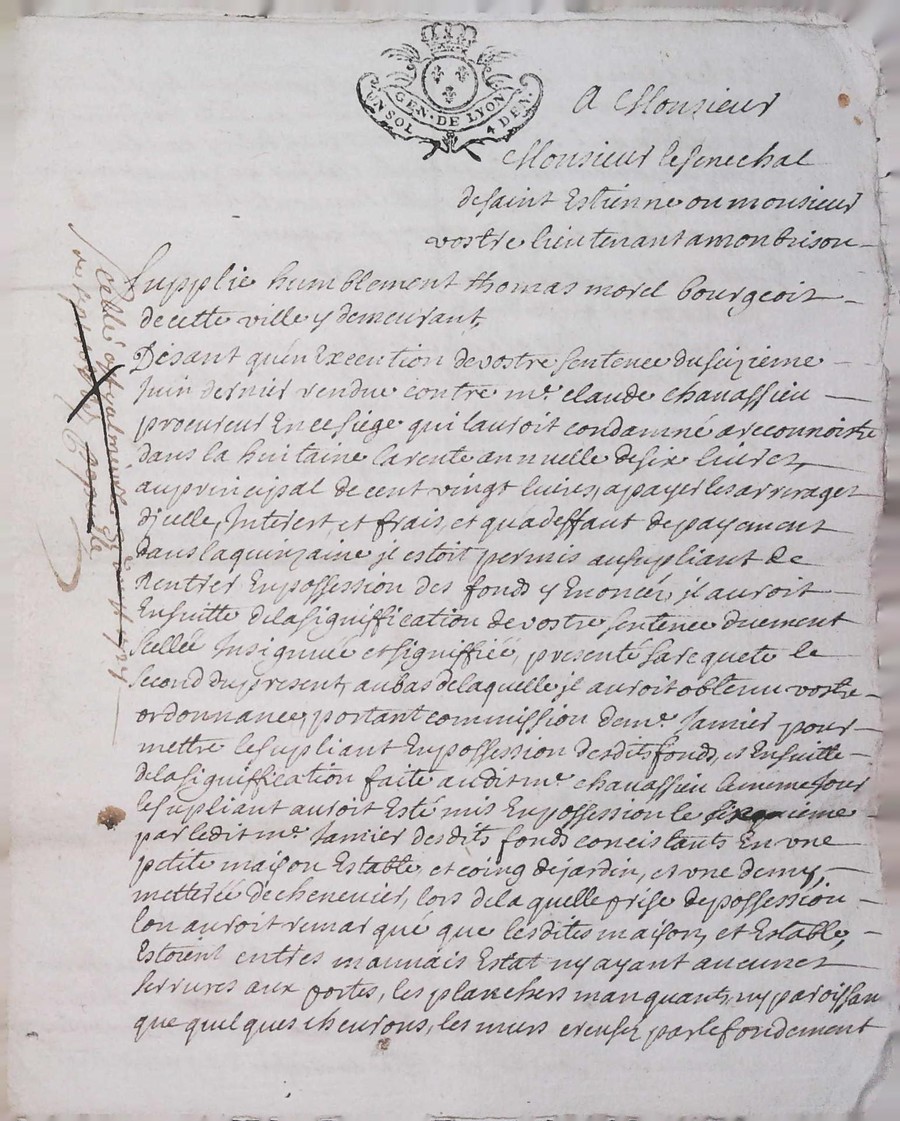 GEN · DE LYON
UN SOL 4 DEN.
A Monsieur
Monsieur le senechal
de saint Estienne ou monsieur
vostre lieutenant a monbrison
Supplie humblement thomas morel bourgeois
de cette ville y demeurant,
Disant qu'en Execution de vostre sentence du seizieme
Juin dernier rendue contre me. claude chauassieu
procureur En ce siege qui l'auroit condamné a reconnoitre
dans la huitaine la rente annuelle de six liures,
au principal de cent vingt liures, a payer les arrerages
d'icelle, Interest, et frais, et qu'a deffaut de payement
dans la quinzaine il estoit permis au supliant de
Rentrer En possession des fonds y Enoncés, il auroit
Ensuitte de la signiffication de vostre sentence duement
scellée Insignuée et signiffiée, presenté sa requete le
second du present, au bas de laquelle il auroit obtenu vostre
ordonnance, portant commission de me. Jamier pour
mettre le supliant En possession desdits fonds, et Ensuitte
de la signiffication faite audit me. chauassieu le meme Jour
le supliant auroit Esté mis En possession le
par ledit me. Jamier desdits fonds concistants En vne
petite maison Estable, et coing de jardin, et vne demy,
metterée de cheneuier, lors de la quelle prise de possession
l'on auroit remarqué que lesdites maison, et Estable,
Estoient en tres mauuais Estat ny ayant aucunes
serrures aux portes, les planchers manquants, ny paroissan
que quelques cheurons, les murs creusez par le fondement